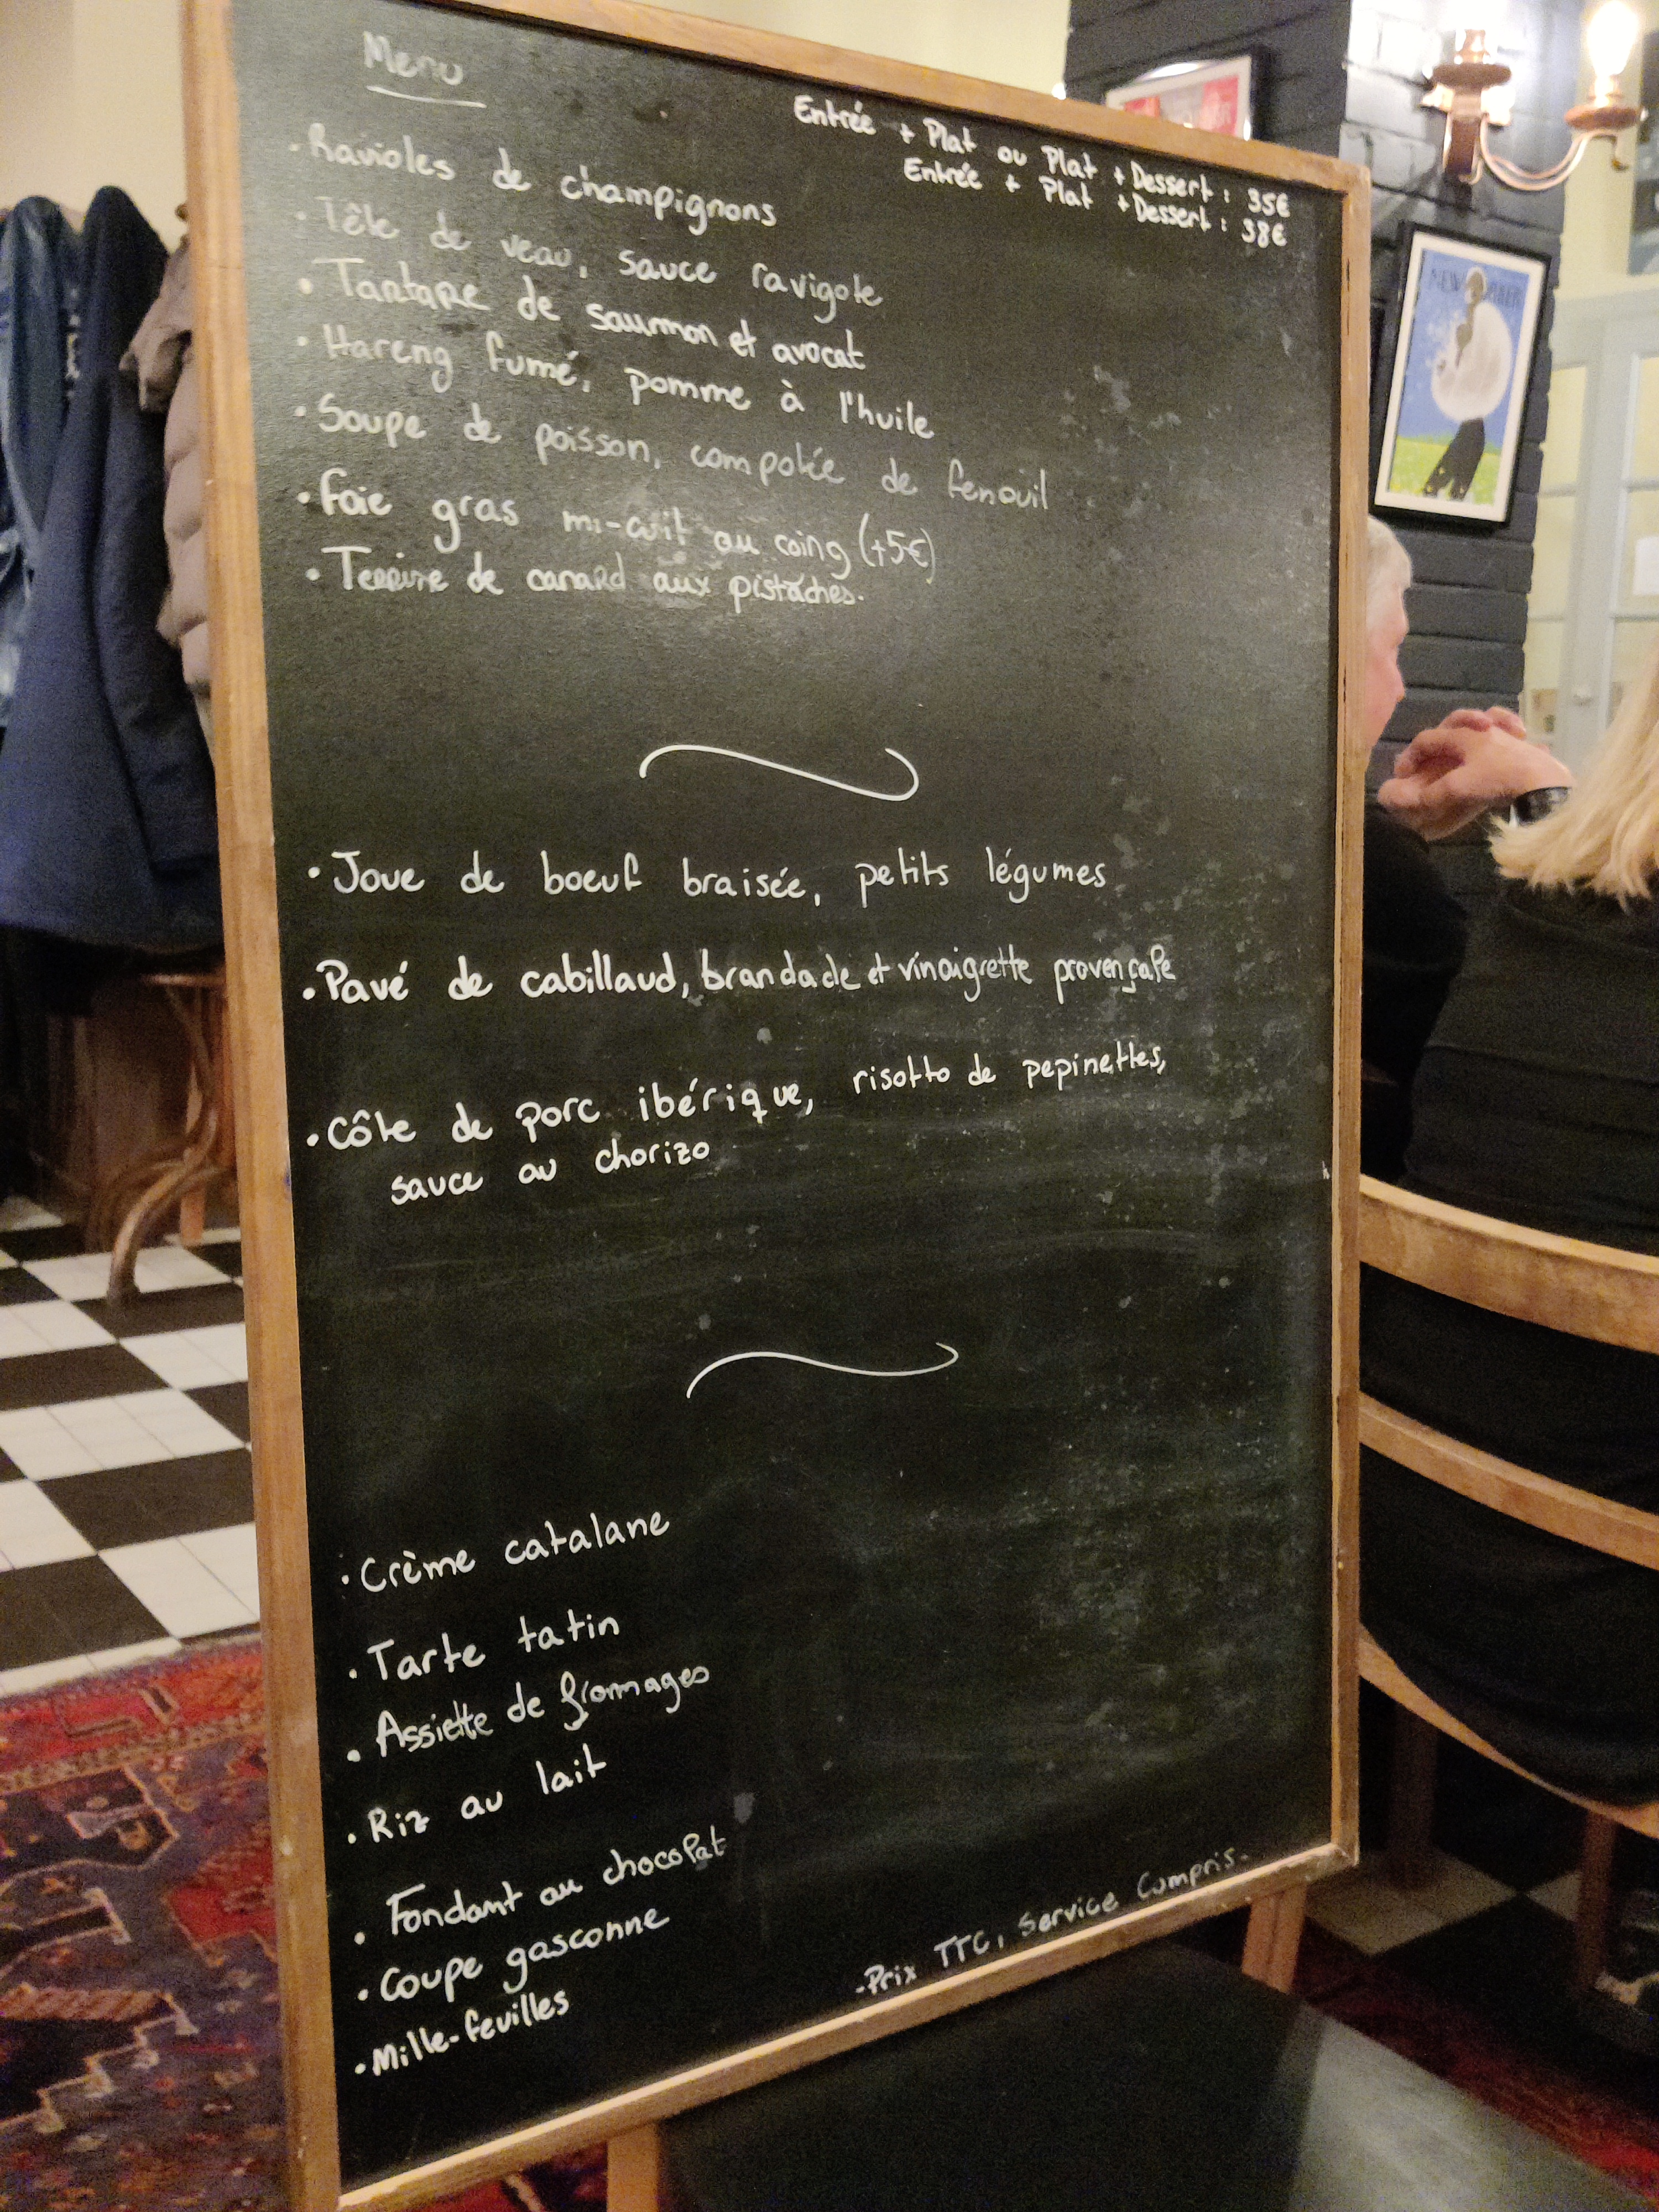 Menu
Entrée + Plat ou Plat + Dessert : 35€
Entrée + Plat + Dessert : 38€
• Ravioles de champignons
• Tête de veau, sauce ravigote
• Tartare de saumon et avocat
• Hareng fumé, pomme à l'huile
• Soupe de poisson, compotée de fenouil
• Foie gras mi-cuit au coing (+5€)
• Terrine de canard aux pistaches.
• Joue de boeuf braisée, petits légumes
• Pavé de cabillaud, brandade et vinaigrette provençale
• Côte de porc ibérique, risotto de pepinettes,
sauce au chorizo
• Crème catalane
• Tarte tatin
• Assiette de fromages
• Riz au lait
• Fondant au chocolat
• Coupe gasconne
• Mille-feuilles
- Prix TTC, Service Compris.